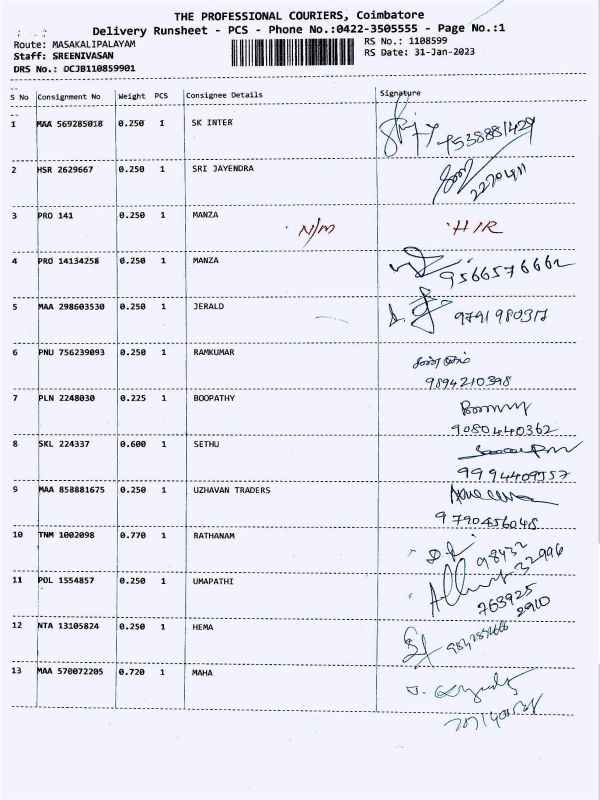 THE PROFESSIONAL COURIERS, Coimbatore
Delivery Runsheet - PCS - Phone No.:0422-3505555 - Page No.:1
Route: MASAKALIPALAYAM
RS No.: 1108599
Staff: SREENIVASAN
RS Date: 31-Jan-2023
DRS No.: DCJB110859901
S No Consignment No Weight PCS Consignee Details Signature
1 MAA 569285018 0.250 1 SK INTER
2 HSR 2629667 0.250 1 SRI JAYENDRA
3 PRO 141 0.250 1 MANZA N/M HIR
4 PRO 14134258 0.250 1 MANZA
9566576662
5 MAA 298603530 0.250 1 JERALD
9791980317
6 PNU 756239093 0.250 1 RAMKUMAR
9894210398
7 PLN 2248030 0.225 1 BOOPATHY
9080440362
8 SKL 224337 0.600 1 SETHU
9994409557
9 MAA 858881675 0.250 1 UZHAVAN TRADERS
9790456048
10 TNM 1002098 0.770 1 RATHANAM
98432
32996
11 POL 1554857 0.250 1 UMAPATHI
763925
2910
12 NTA 13105824 0.250 1 HEMA
13 MAA 570072205 0.720 1 MAHA